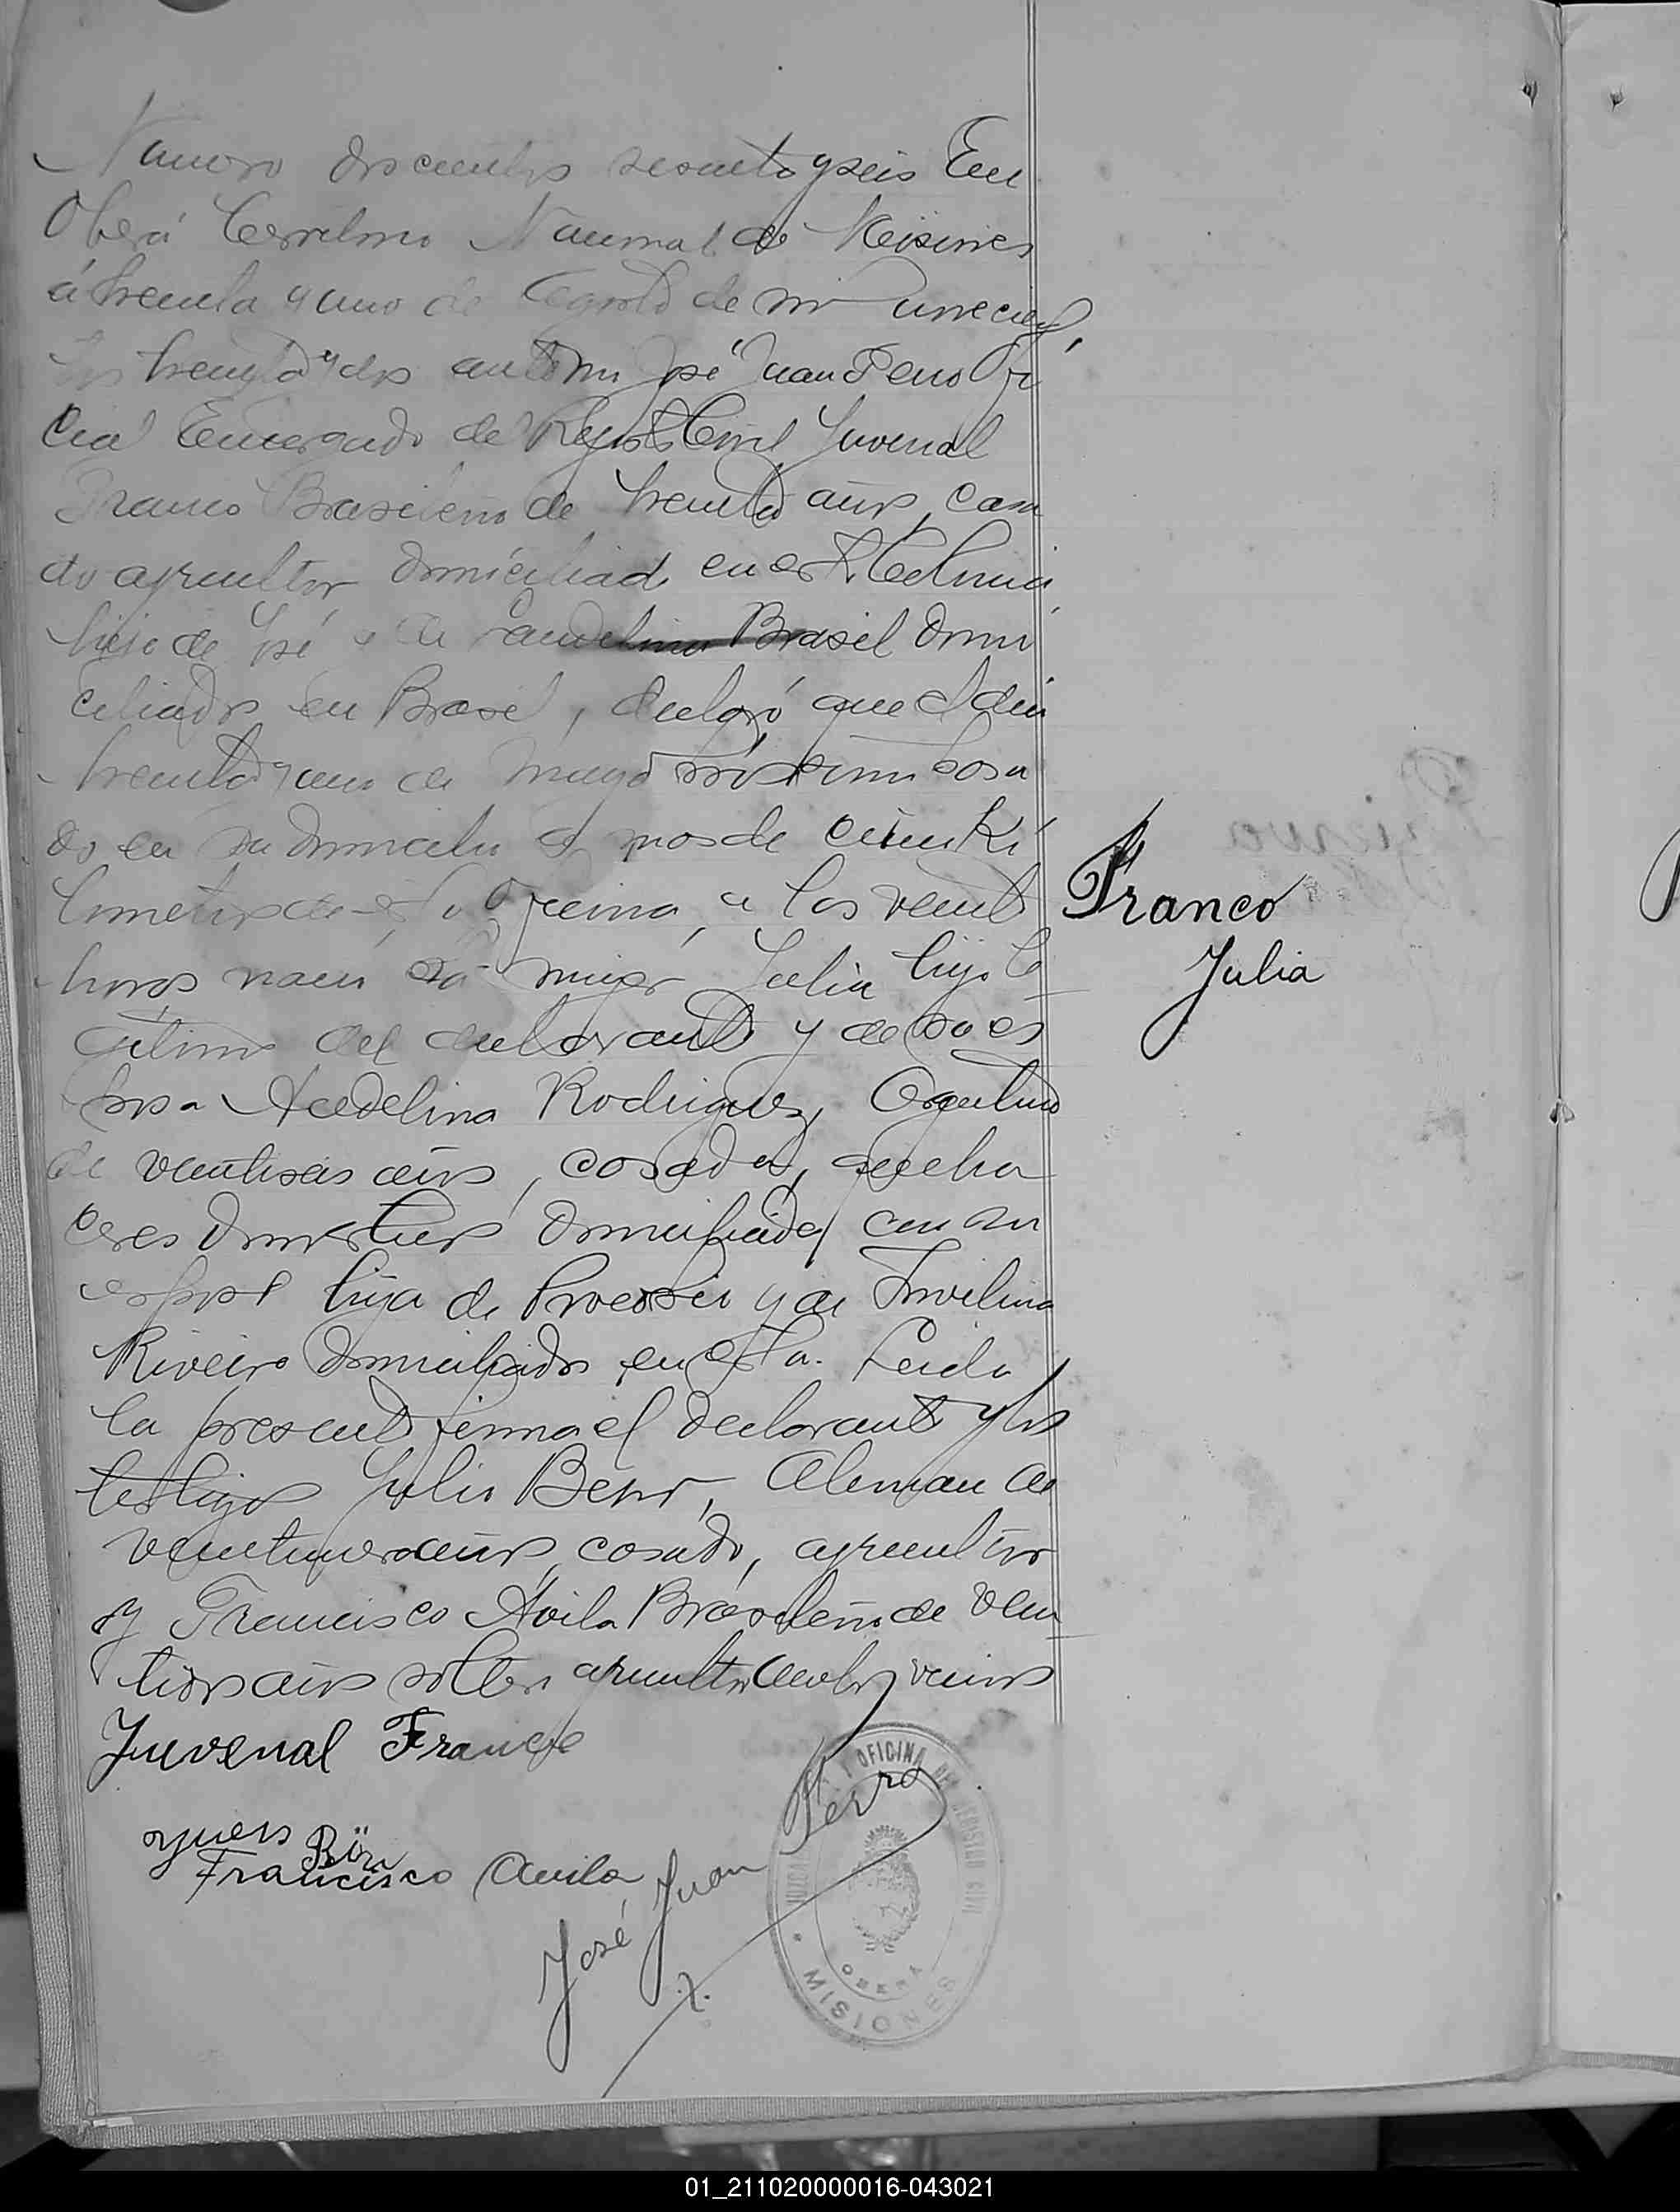 Numero doscientos sesenta y seis En
Oberá Territorio Nacional de Misiones
á treinta y uno de Agosto de mil novecien
tos treinta y dos ante mi José Juan Perro Ofi
cial Encargado del Registro Civil Juvenal
Franco Brasileño de treinta años, casa
do agricultor domiciliado en esta Colonia
hijo de José y de Brasil domi
ciliados en Brasil, declaró que el dia
treinta y uno de Mayo proximo pasa
do en su domicilio a mas de cien Ki
lometros de esta Oficina, a las veinte
horas nació la mujer Julia hija le
gitima del declarante y de su es
posa Adelina Rodriguez, Argentina
de veintiseis años, casada, queha
ceres domesticos domiciliada con su
esposo hija de y de
Riveiro domiciliados en esta. Leida
la presente firma el declarante y los
testigos Julio Beur, Aleman de
años, casado, agricultor
y Francisco Avila Brasileño de vein
tidos años soltero agricultor ambos vecinos
Juvenal Franco
Francisco Avila
José Juan Perro
Franco
Julia
OFICINA DEL REGISTRO CIVIL
OBERA
MISIONES
01_211020000016-043021